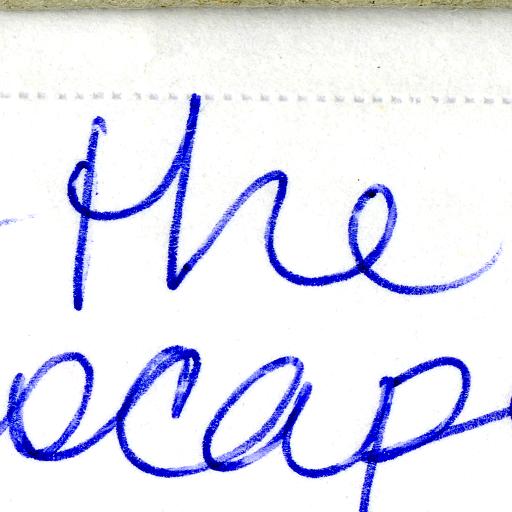 the
ocap